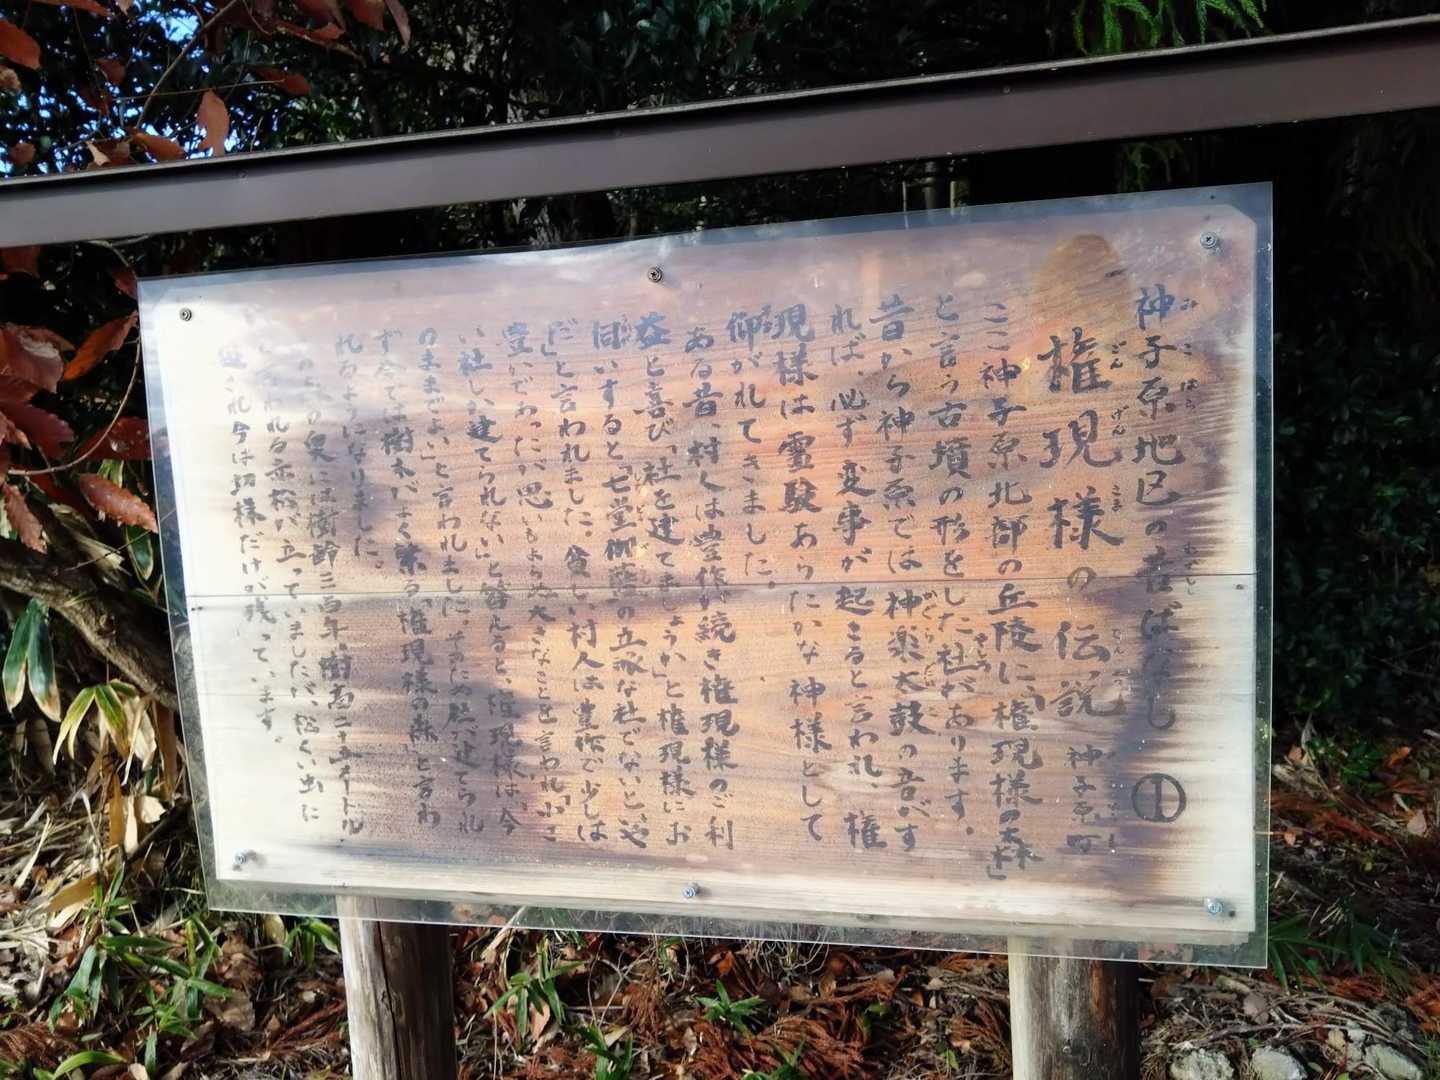 神子原地区の昔ばなし ①
権現様の伝説 神子原町
ここ神子原北部の丘陵に、「権現様の森」
と言う古墳の形をした社があります。
昔から神子原では神楽太鼓の音がす
れば、必ず変事が起こると言われ、権
現様は霊験あらたかな神様として
仰がれてきました。
ある昔、村人は豊作が続き権現様のご利
益と喜び「社を建てましょうか」と権現様にお
伺いすると「七堂伽藍の立派な社でないと、や
だ」と言われました。貧しい村人は豊作で少しは
豊いでわったが思いもよらぬ大きなことを言われ「小さ
い社しか建てられない」と答えると、権現様は、今
のままでよい」と言われました。そのため社が建てられ
ず今では樹木がよく繁る「権現様の森」と言わ
れるようになりました。
の泉には樹齢三百年、樹高二十五メートル
われる赤松が立っていましたが、松くい虫に
され今は切株だけが残っています。